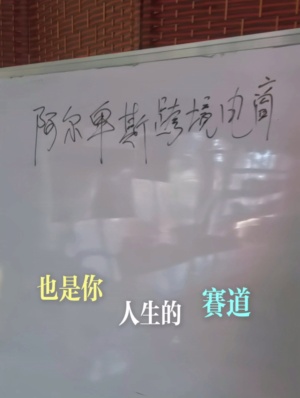 阿尔卑斯跨境电商
也是你
人生的
賽道